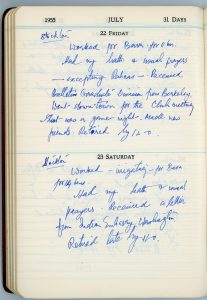 1955 JULY 31 DAYS
22 FRIDAY
Stockton
Worked for Bawa for 8 hrs.
Had my bath & usual prayers
— excepting Rehras — Received
Bulletin Graduate Division from Berkeley
Went down-town for the Club meeting
That was a game-night. Made new
friends. Retired by 12-0.
23 SATURDAY
Stockton
Worked — irrigating — for Bawa
for hrs
Had my bath & usual
prayers Received a letter
from Indian Embassy, Washington
Retired late by 11-0.